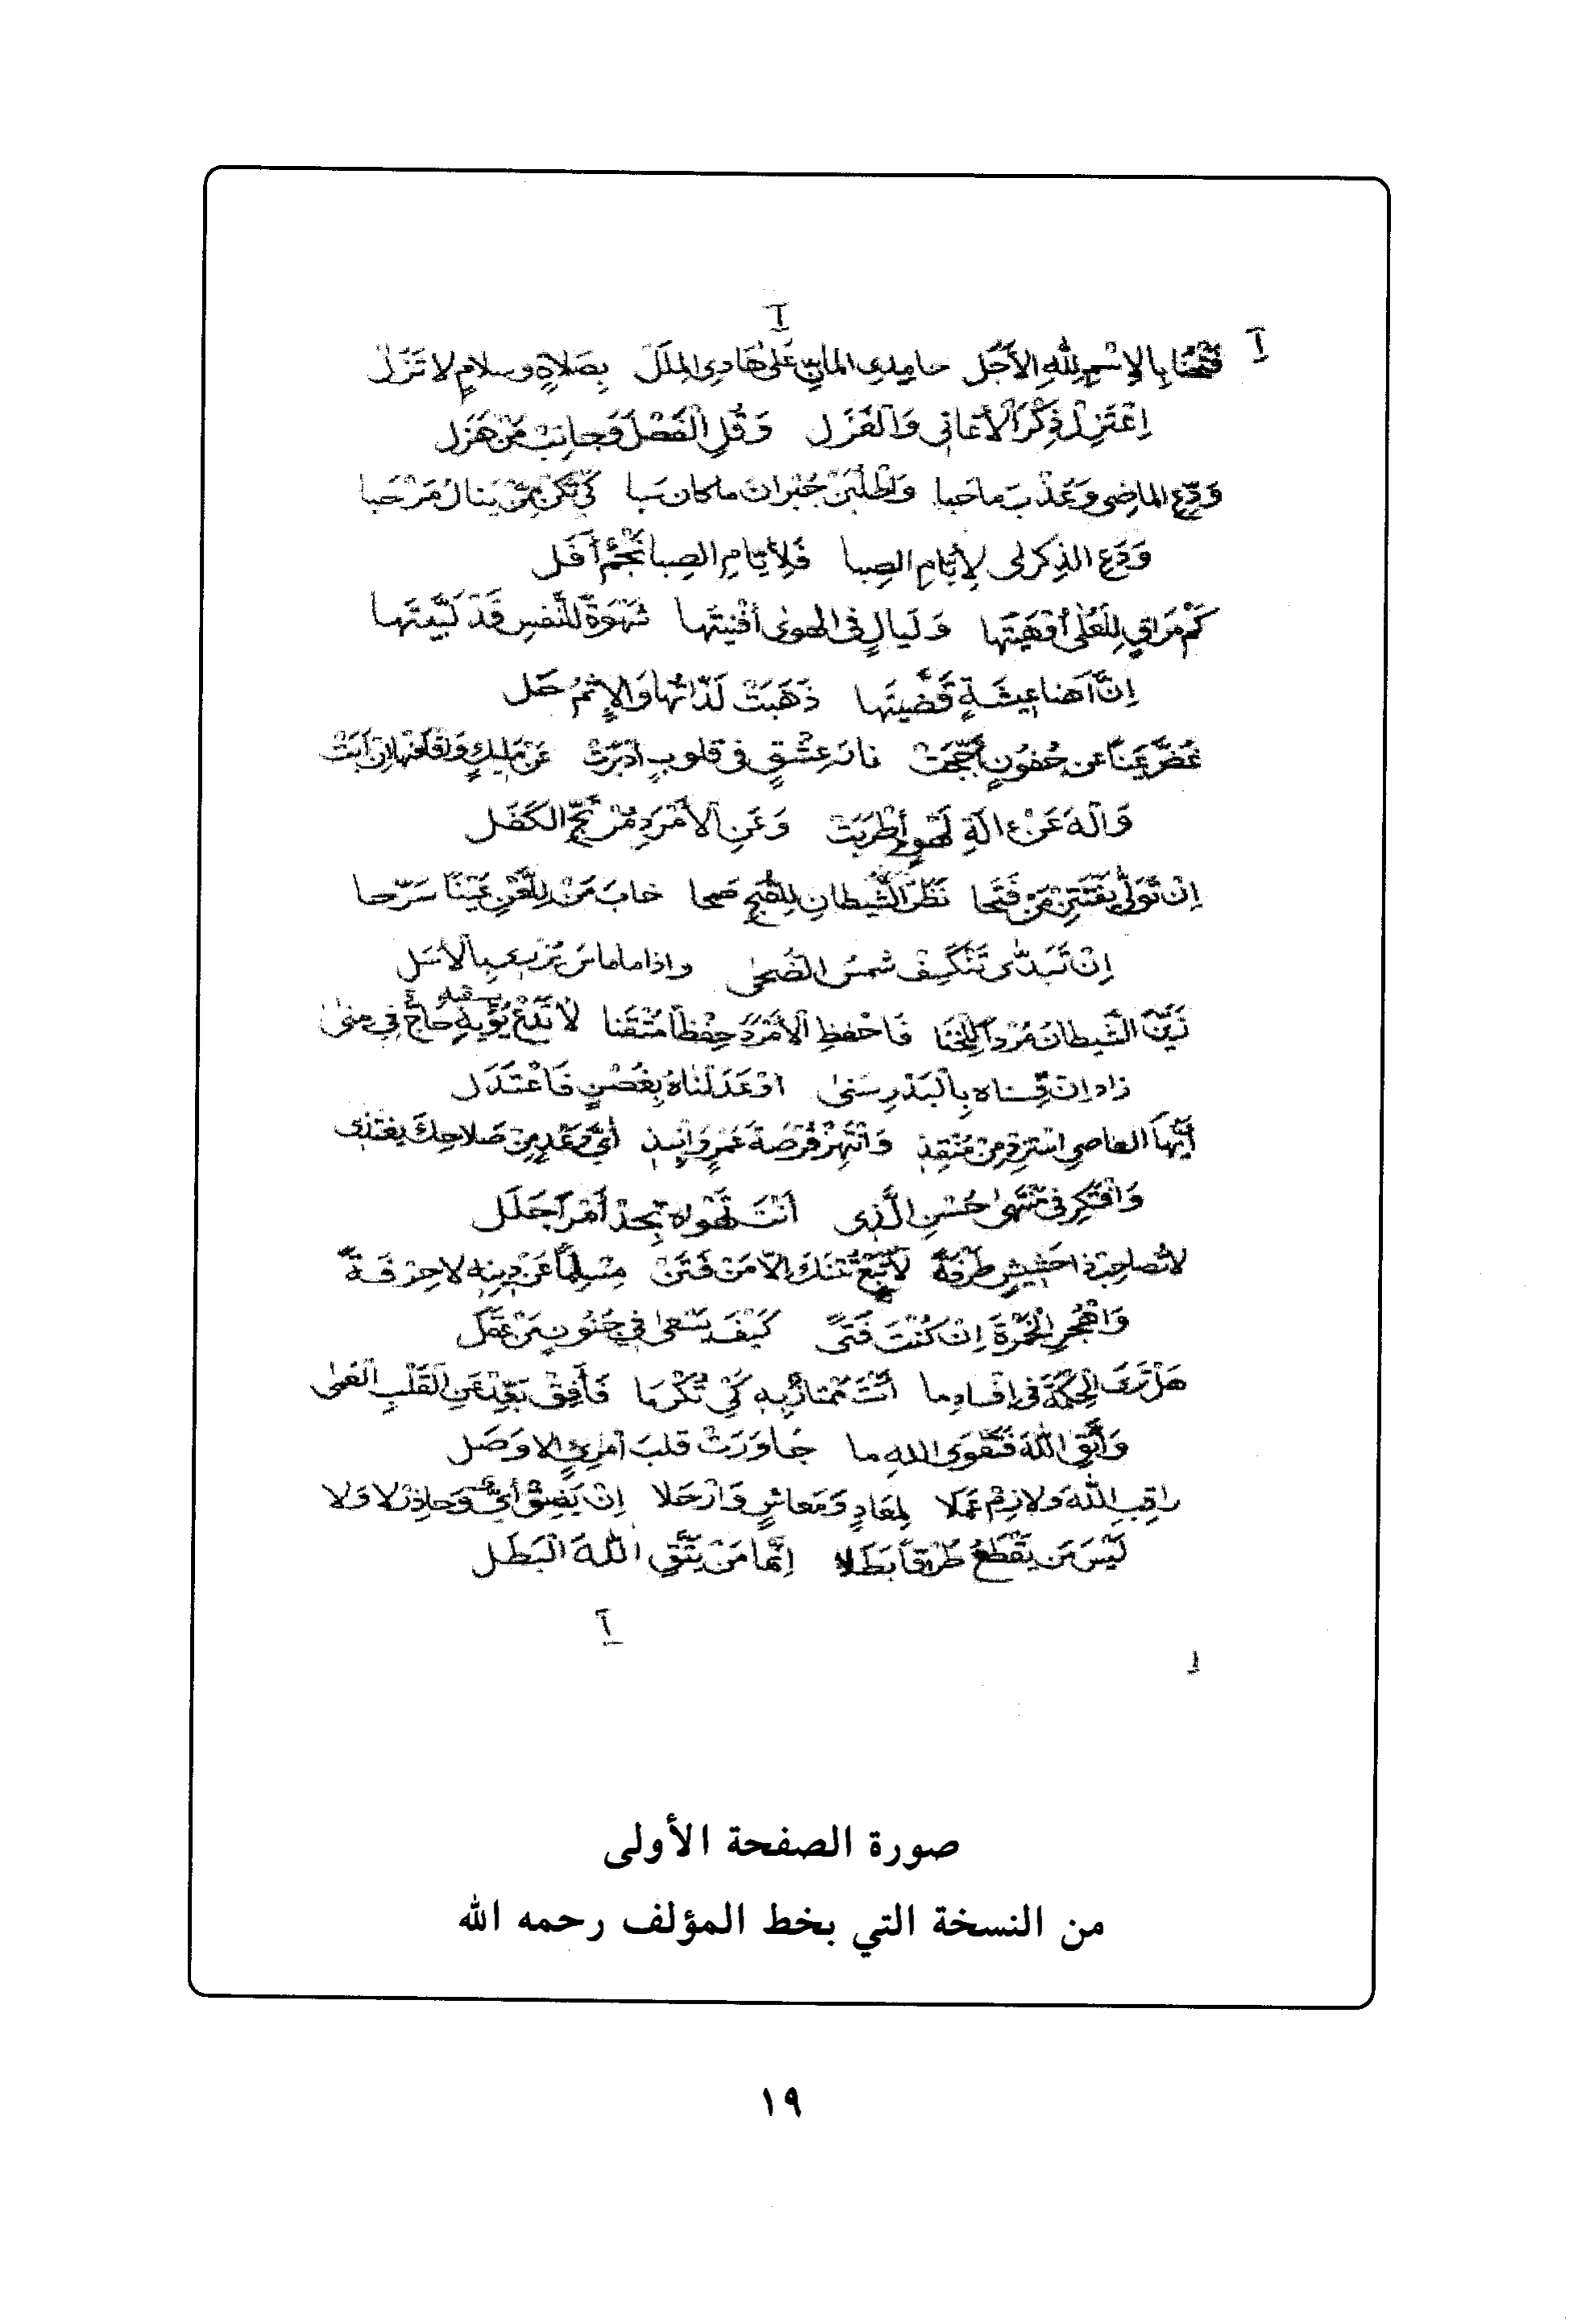 فتحنا بالإسم لله الأجل حامدي المانّ على هادي الملل بصلاةٍ وسلامٍ لا تزل
اِعْتَزِلْ ذِكْرَ الأغاني وَالْغَزَل وَقُلِ الْفَصْلَ وَجانِبْ مَنْ هَزَل
وَدِّعِ الماضي وَعَذْبَ ما حبا وَاطْلُبَنْ جُبْرانَ ما كان سَبا كَيْ تَكُنْ مِمّنْ يَنالُ مَرْحَبا
وَدَعِ الذِكرى لِأيّامِ الصِبا فَلِأيّامِ الصِبا نَجْمٌ أَفَل
كَمْ مَراقٍ لِلْعُلى أَوْهَيْتَها وَلَيالٍ في الهوى أفْنَيْتَها شَهْوَةً للنَّفسِ قَدْ لَبَّيْتَها
اِنَّ أهنا عِيشَةٍ قَضَّيْتَها ذَهَبَتْ لَذّاتُها وَالإثْمُ حَل
غُضَّ عَيْناً عن جُفونٍ أجّجت نار عِشْقٍ في قلوبٍ أدْبَرَتْ عَنْ مليكٍ
وَالْهُ عَنْ ءالَةِ لَهْوٍ أطْرَبَتْ وَعَنِ الأَمْرَدِ مُرْتَجِّ الكَفَل
اِنْ تَوَلّى يَفْتَتِنْ مَنْ فَتَحا نَظَرَ الشَّيطانِ لِلْقُبْحِ صحا خابَ مَنْ عَيْنًا سَرّحا
اِنْ تَبَدّى تَنْكَسِفْ شمسُ الضُّحى وإذا ما ماسَ يُزْري بِالأَسَل
زَيَّنَ الشَّيطانُ مُرْداً لِلْخَنا فَاحْفَظِ الأَمْرَدَ حِفْظاً مُتْقَنا لا تَدَعْ حاجٌّ في منى
زاد إن قِسْناه بِالْبَدْرِ سَنى أوْ عَدَلْناهُ بِغُصْنٍ فَاعْتَدَل
أيّها العاصي اسْتَزِدْ مِنْ مُنْقِذِ وَانْتَهِزْ فُرْصَةَ عُمْرٍ أيُّ وَغْدٍ مِنْ صَلاحِكَ يغتذي
وَافْتَكِرْ في مُنْتَهى حُسْنِ الَّذي أنْتَ تَهْواه تَجِدْ أمْراً جَلَل
لا تُصاحِبْ ذا حَشِيشٍ طَرْفَةً إلّا مَنْ فَتَنْ مُسْلِماً عَنْ دِينِهِ لا حِرْفَةً
وَاهْجُرِ الْخَمْرَةَ اِنْ كُنْتَ فَتىً كَيْفَ يَسْعى في جُنُونٍ مَنْ عَقَل
هَلْ تَرى الْحِكْمَةَ في إفسادِ ما أنْتَ مُمْتازٌ بِهِ كَيْ تُكْرَما فَأفِقْ عَنِ الْقَلْبِ الْعَمى
وَاتَّقِ اللهَ فَتَقْوى اللهِ ما جاوَرَتْ قلبَ امرئٍ إلا وَصَل
راقِبِ اللهَ وَلازِمْ عَمَلا لِمَعادٍ وَمَعاشٍ وَارْحَلا وَحاذِرْ لا وَلا
لَيْسَ مَن يَقْطَعُ طُرْقاً بَطَلا اِنّما مَنْ يَتَّقي اللهَ الْبَطَل
صورة الصفحة الأولى
من النسخة التي بخط المؤلف رحمه الله
١٩